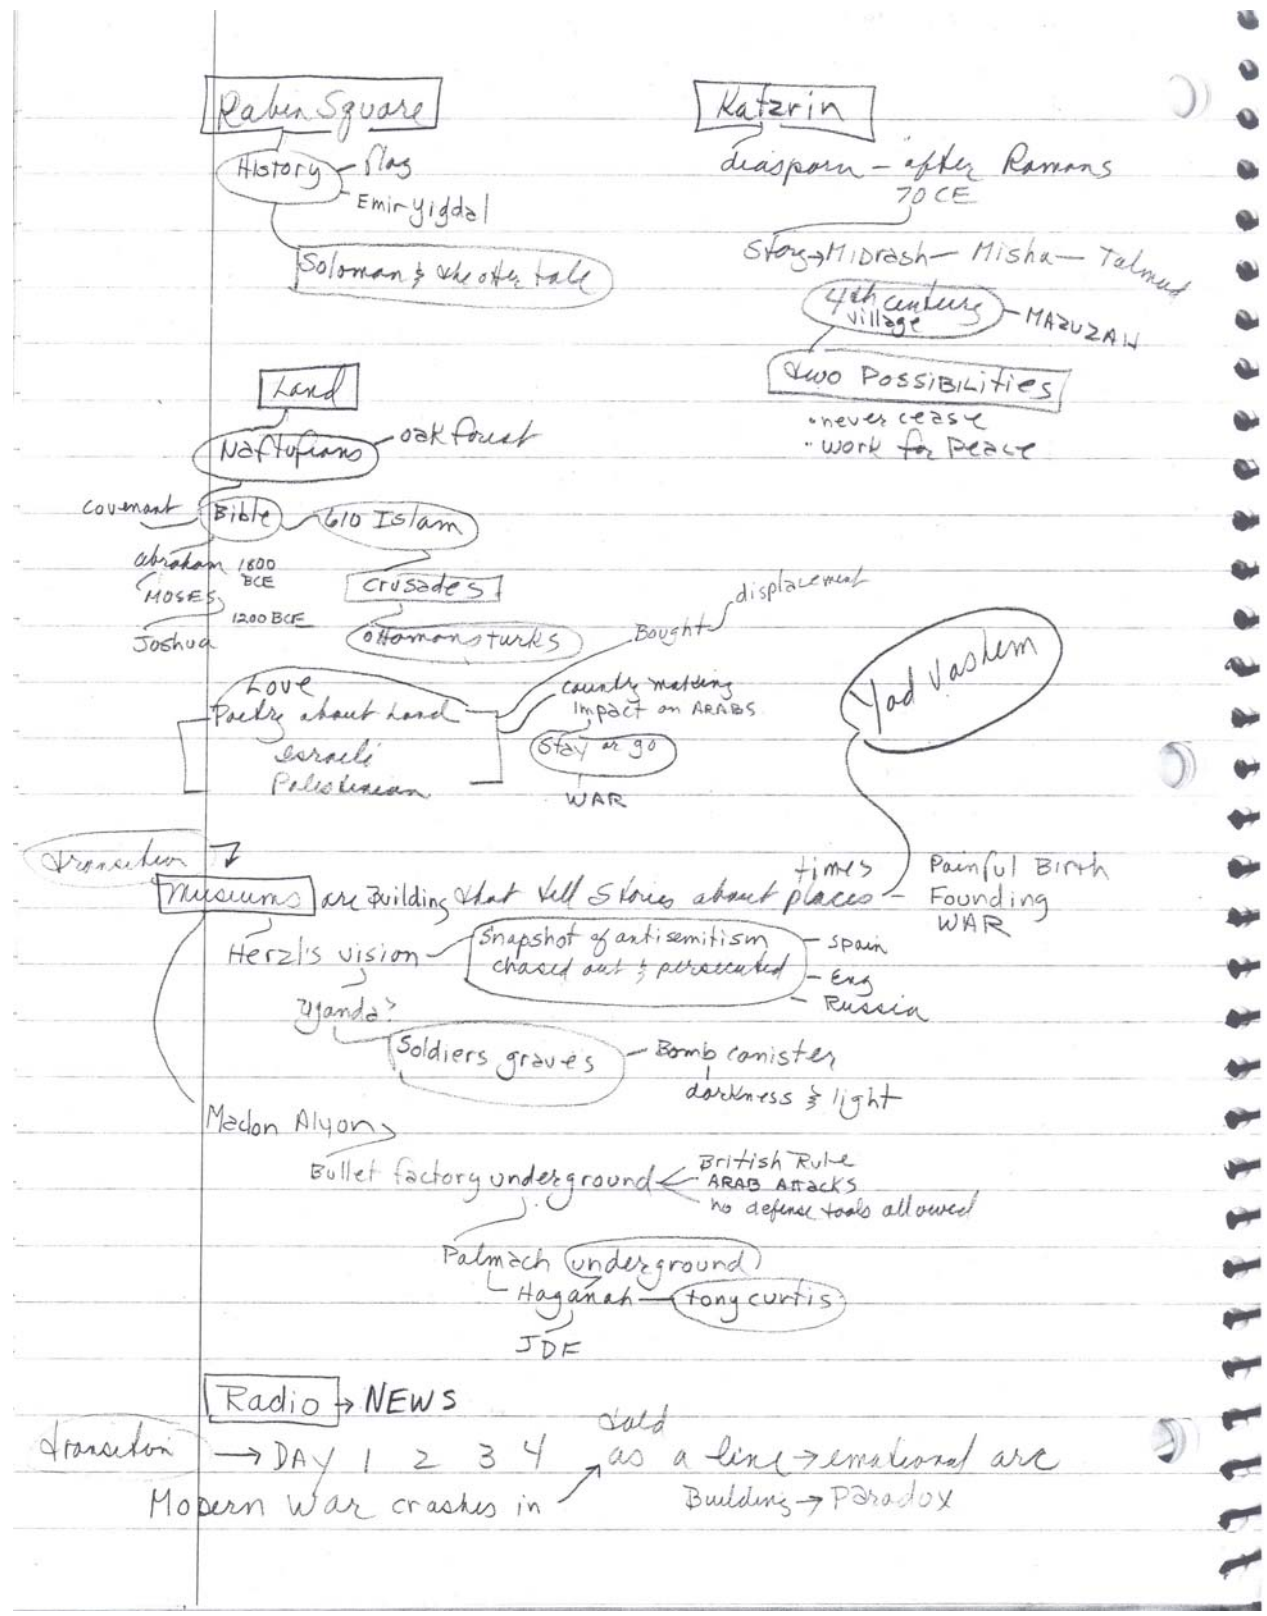 Rabin Square
History - flag
Emir Yigdal
Soloman & the otter tale
Katzrin
diaspora - after Romans
70 CE
Story → Midrash - Misha - Talmud
4th century
village - MAZUZAH
two Possibilities
• never cease
• work for Peace
Land
Naftufians - oak forest
covenant Bible 610 Islam
abraham 1800
BCE
Moses
1200 BCE
Joshua
crusades
ottomans turks
Bought displacement
Love
Poetry about Land
Israeli
Palestinian
country making
impact on ARABS
Stay or go
WAR
Yad Vashem
transition
times
Museums are Building that tell Stories about places - Painful Birth
Founding
WAR
Herzl's vision - Snapshot of antisemitism
chased out & persecuted
- Spain
- Eng
- Russia
Uganda?
Soldiers graves - Bomb canister
darkness & light
Madon Alyon
Bullet factory underground
British Rule
ARAB Attacks
no defense tools allowed
Palmach underground
Haganah - tony curtis
JDF
Radio → NEWS
told
transition → DAY 1 2 3 4 as a line → emotional arc
Modern War crashes in Building → Paradox